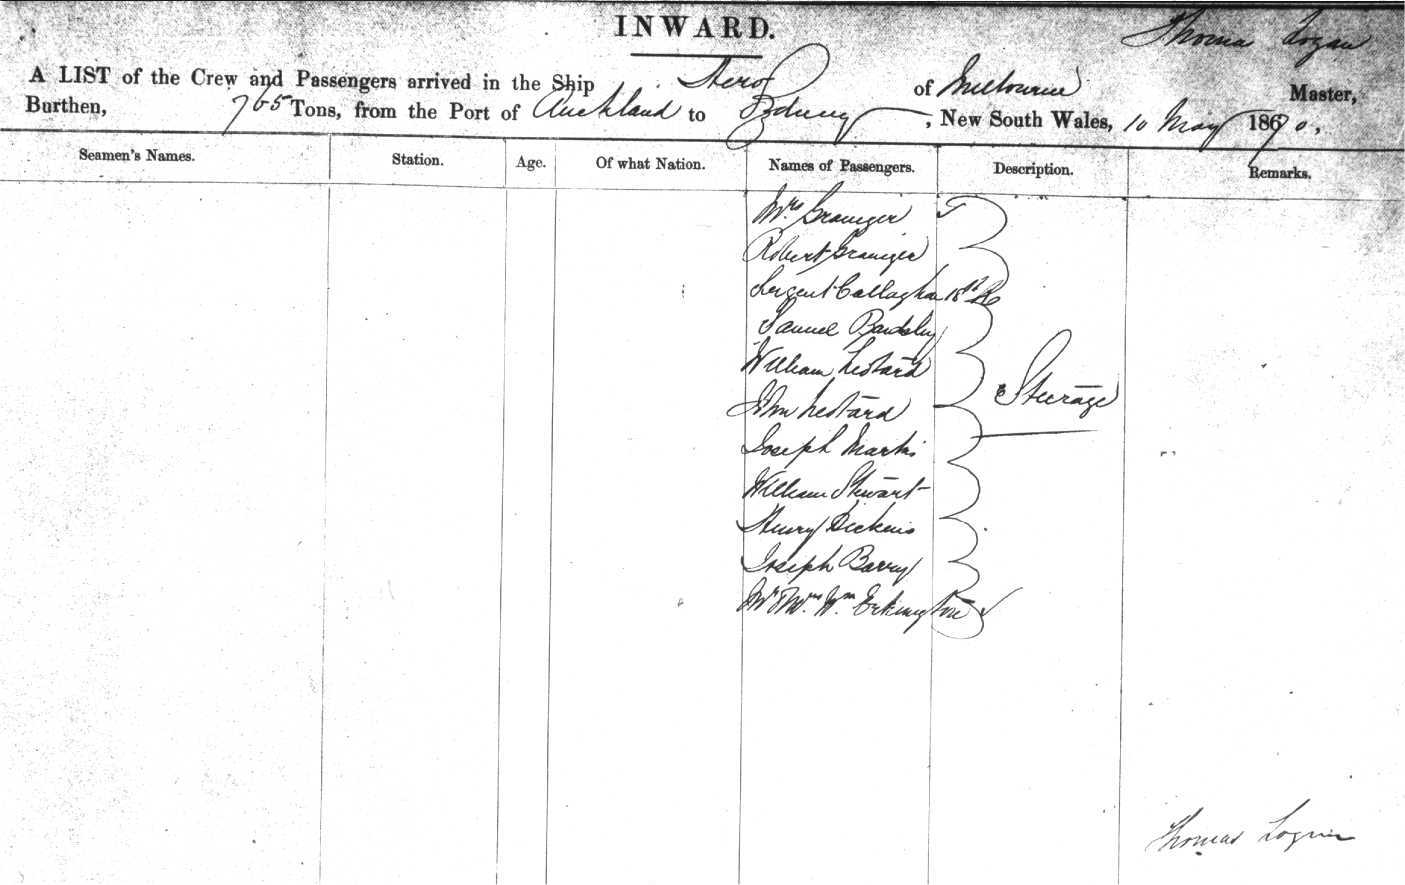 INWARD.
Thomas Logan
A LIST of the Crew and Passengers arrived in the Ship Hero of Melbourne Master,
Burthen, 765 Tons, from the Port of Auckland to Sydney, New South Wales, 10 May 1870,
Seamen's Names. Station. Age. Of what Nation. Names of Passengers. Description. Remarks.
Mrs Grainger
Robert Grainger
Sergent Callaghan 18th R
Samuel Bardsley
William Leotard
John Leotard
Steerage
Joseph Martin
William Stewart
Henry Dickens
Joseph Barry
Mr & Mrs Wm Erkington
Thomas Logan